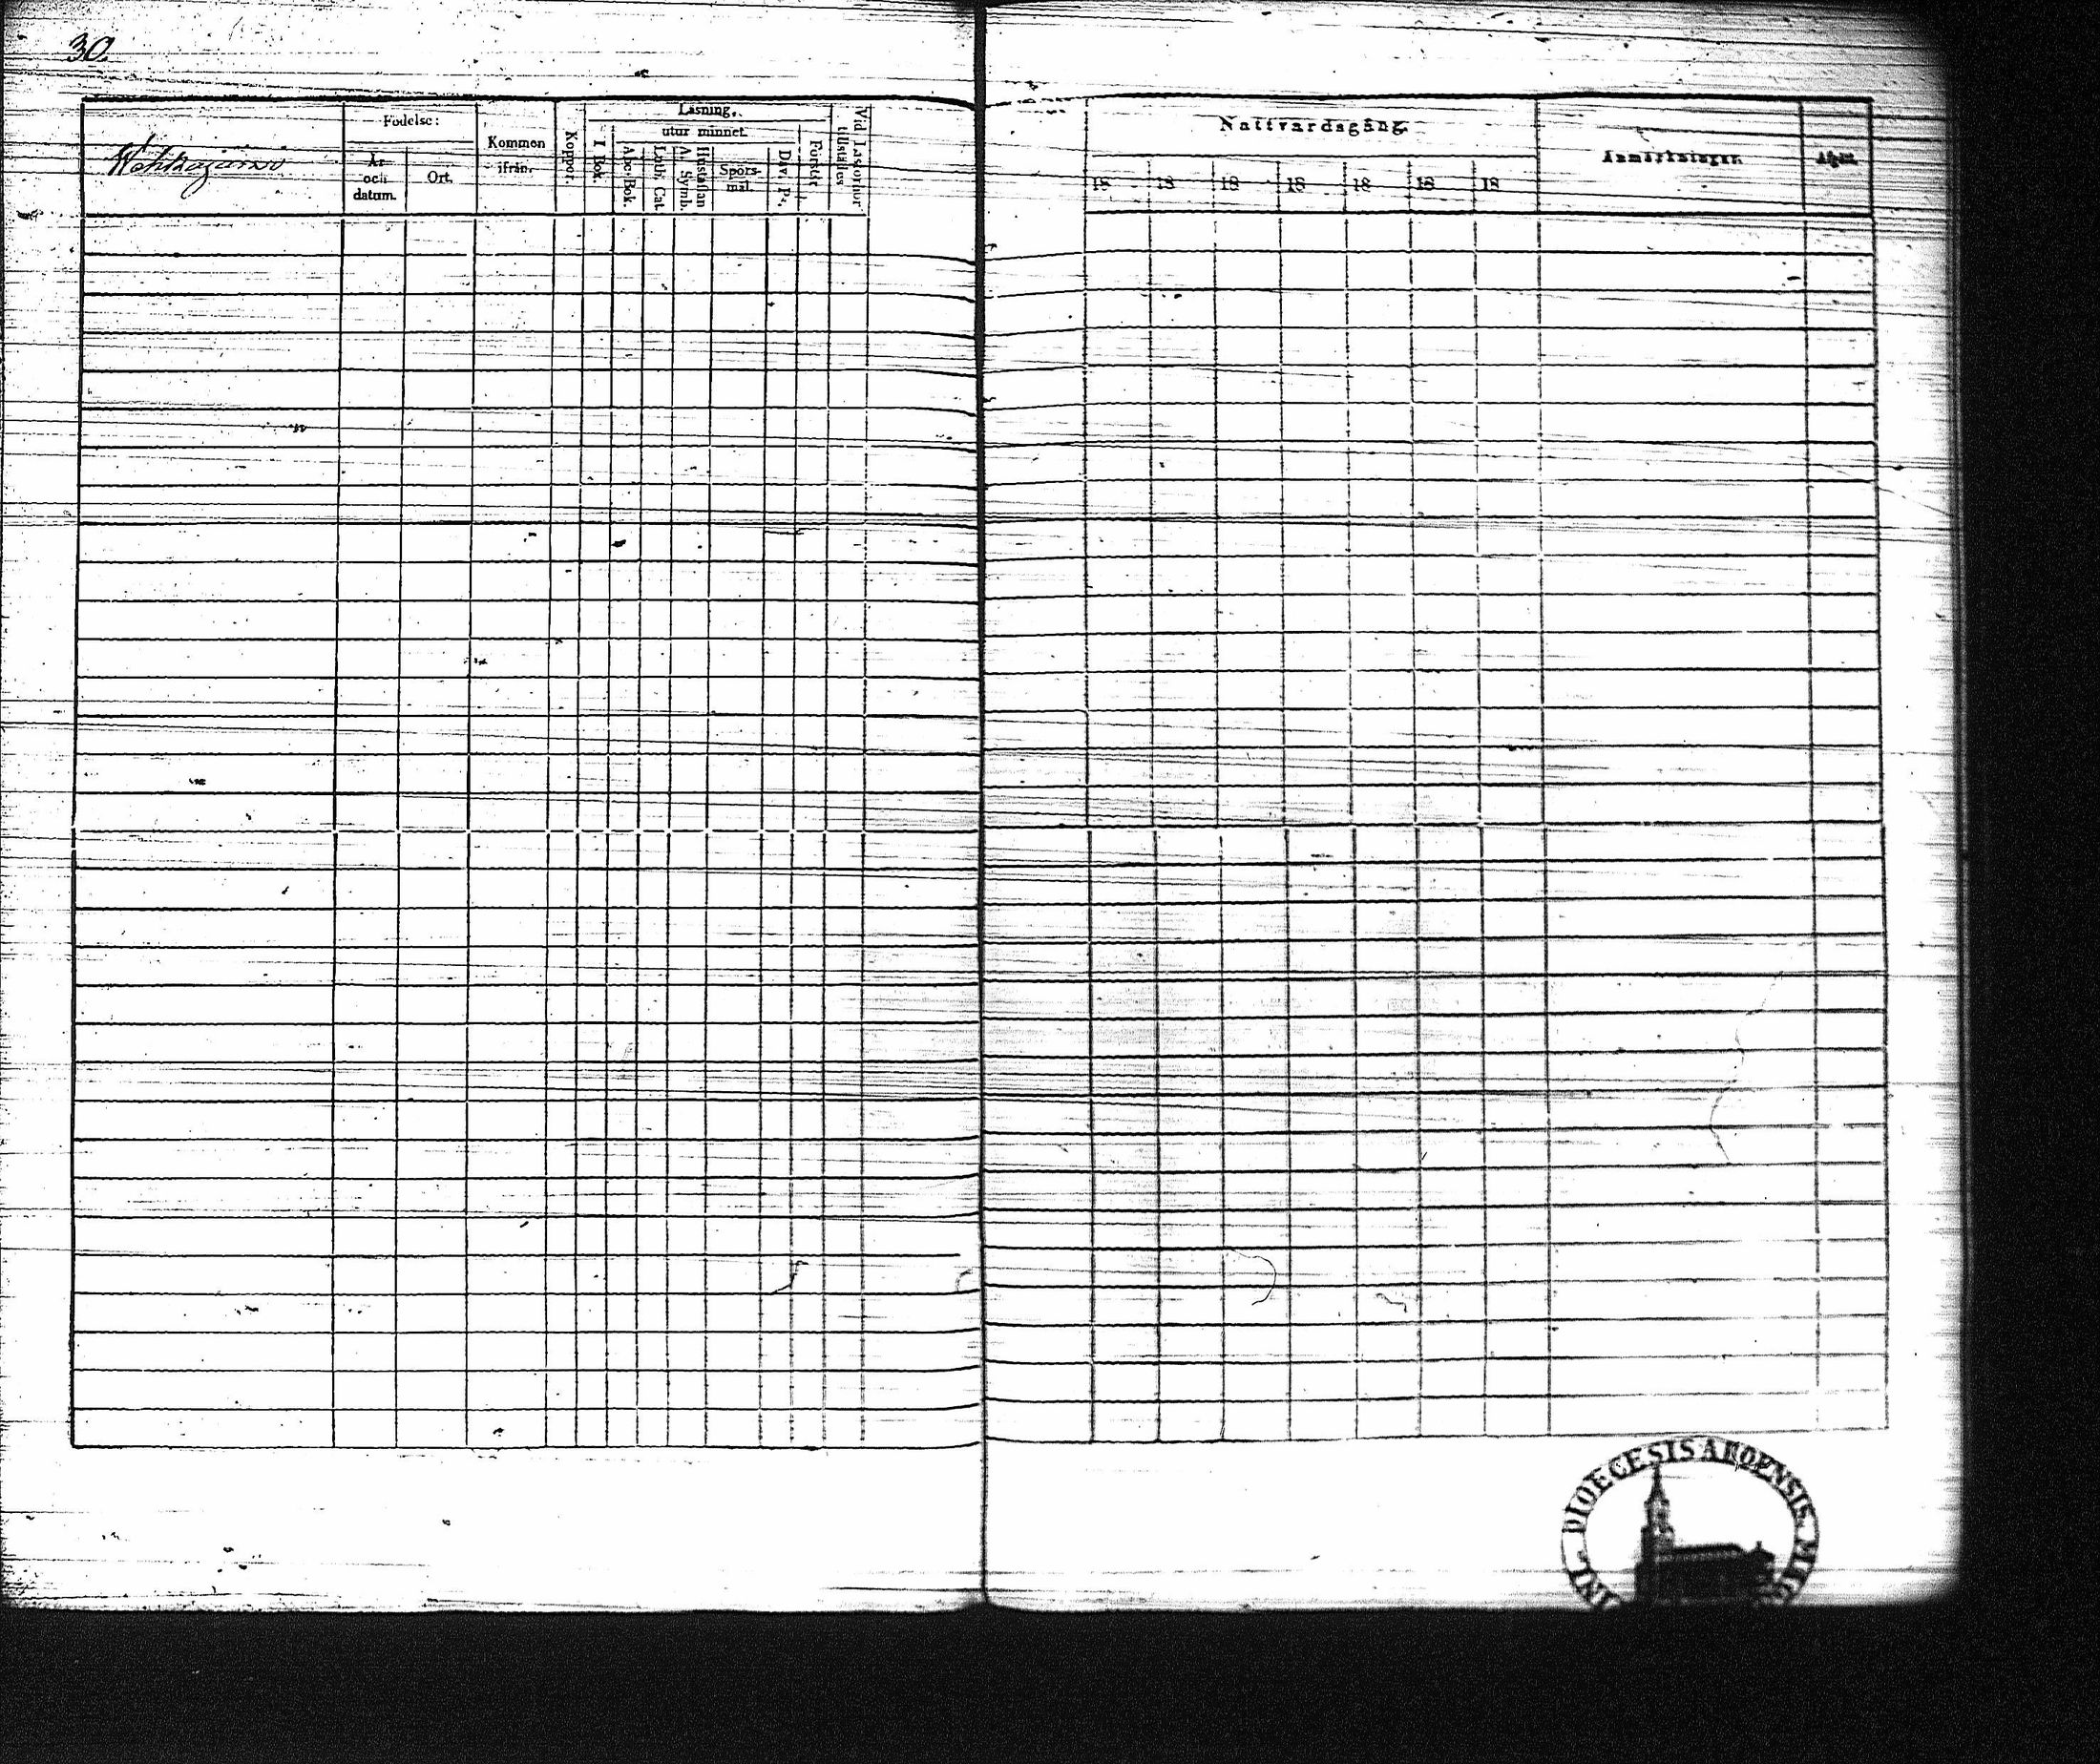 30.
Födelse:
År
och
datum.
Ort.
Kommen
ifrån.
Koppor.
Läsning.
utur minnet.
I Bok.
Abc-Bok.
Luth. Cat.
A. Symb.
Hustaflan
Spörs-
mål.
Dav. Ps.
Förstår
Vid Läseförhör
tillstädes
Nattvardsgång.
18 18 18 18 18 18 18
Anmärkningar.
Afgått.
DIOECESIS ABOENSIS.